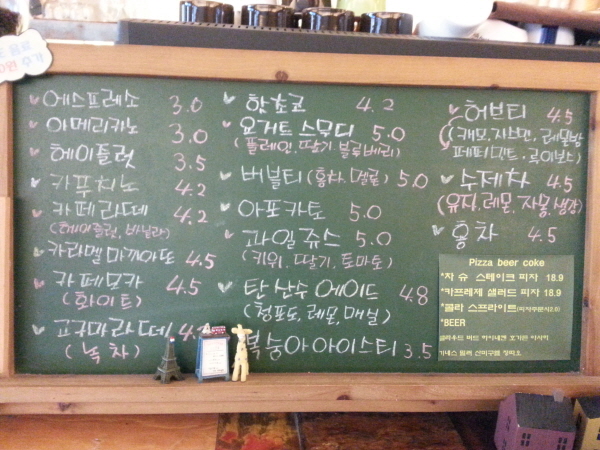 에스프레소 3.0
아메리카노 3.0
헤이즐럿 3.5
카푸치노 4.2
카페라떼 4.2
(헤이즐럿, 바닐라)
카라멜 마끼아또 4.5
카페모카 4.5
(화이트)
고구마라떼 4.2
(녹차)
핫쵸코 4.2
요거트 스무디 5.0
(플레인, 딸기, 블루베리)
버블티 (홍차, 멜론) 5.0
아포카토 5.0
과일쥬스 5.0
(키위, 딸기, 토마토)
탄산수 에이드 4.8
(청포도, 레몬, 매실)
복숭아아이스티 3.5
허브티 4.5
(캐모, 자스민, 레몬밤
페퍼민트, 루이보스)
수제차 4.5
(유자, 레몬, 자몽, 생강)
홍차 4.5
Pizza beer coke
*차 슈 스테이크 피자 18.9
*카프레제 샐러드 피자 18.9
*콜라 스프라이트(피자주문시2.0)
*BEER